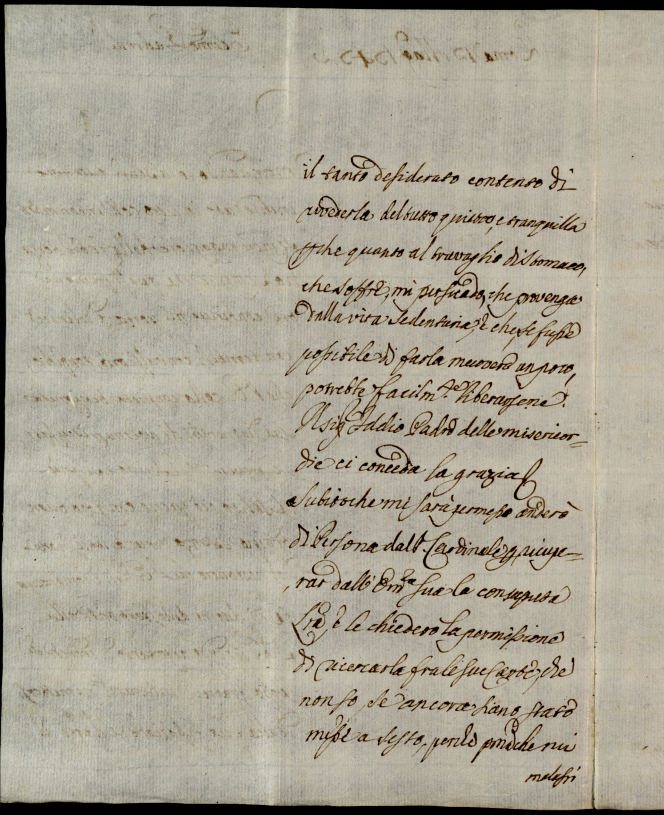 il tanto desiderato contento di
vederla del tutto quieto, e tranquilla
quanto al travaglio di stomaco,
che soffre, mi persuado, che provenga
dalla vita sedentaria, e che, se fusse
possibile di farla muovere un poco,
potrebbe facilm.te liberarsene.
Il Sig.r Iddio Padre delle misericor-
die ci conceda la grazia
Subito che mi sarà permesso anderò
di Persona dal S. Cardinale p ricupe-
rar dall' Em.za Sua la consaputa
Lra e le chiederò la permissione
di ricercarla fra le sue carte, che
non so se ancora siano state
messe a sesto,